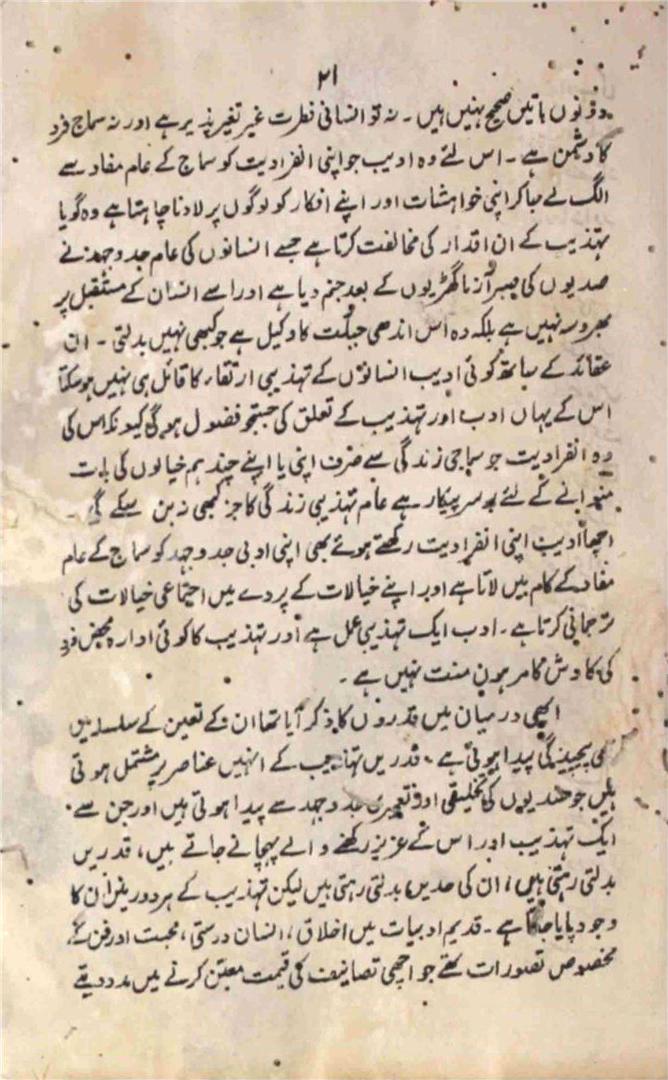 ۲۱
دونوں باتیں صحیح نہیں ہیں۔ نہ تو انسانی فطرت غیر تغیر پذیر ہے اور نہ سماج فرد
کا دشمن ہے۔ اس لئے وہ ادیب جو اپنی انفرادیت کو سماج کے عام مفاد سے
الگ لے جا کر اپنی خواہشات اور اپنے افکار کو لوگوں پر لادنا چاہتا ہے وہ گویا
تہذیب کے ان اقدار کی مخالفت کرتا ہے جسے انسانوں کی عام جدوجہد نے
صدیوں کی صبر آزما گھڑیوں کے بعد جنم دیا ہے اور اسے انسان کے مستقبل پر
بھروسہ نہیں ہے بلکہ وہ اس اندھی جبلّت کا وکیل ہے جو کبھی نہیں بدلتی۔ ان
عقائد کے ساتھ کوئی ادیب انسانوں کے تہذیبی ارتقاء کا قائل ہی نہیں ہو سکتا
اس کے یہاں ادب اور تہذیب کے تعلق کی جستجو فضول ہوگی کیونکہ اس کی
وہ انفرادیت جو سماجی زندگی سے صرف اپنی یا اپنے چند ہم خیالوں کی بات
منوانے کے لئے برسرپیکار ہے عام تہذیبی زندگی کا جز کبھی نہ بن سکے گی۔
اچھا ادیب اپنی انفرادیت رکھتے ہوئے بھی اپنی ادبی جدوجہد کو سماج کے عام
مفاد کے کام میں لاتا ہے اور اپنے خیالات کے پردے میں اجتماعی خیالات کی
ترجمانی کرتا ہے۔ ادب ایک تہذیبی عمل ہے اور تہذیب کا کوئی ادارہ محض فرد
کی کاوش کا مرہون منت نہیں ہے۔
ابھی درمیان میں قدروں کا ذکر آیا تھا ان کے تعین کے سلسلہ میں
بھی پیچیدگی پیدا ہوتی ہے۔ قدریں تہذیب کے انہیں عناصر پر مشتمل ہوتی
ہیں جو صدیوں کی تخلیقی اور تعمیری جدوجہد سے پیدا ہوتی ہیں اور جن سے
ایک تہذیب اور اس کے عزیز رکھنے والے پہچانے جاتے ہیں، قدریں
بدلتی رہتی ہیں، ان کی حدیں بدلتی رہتی ہیں لیکن تہذیب کے ہر دور میں ان کا
وجود پایا جاتا ہے۔ قدیم ادبیات میں اخلاق، انسان دوستی، محبت اور فن کے
مخصوص تصورات تھے جو اچھی تصانیف کی قیمت معین کرنے میں مدد دیتے